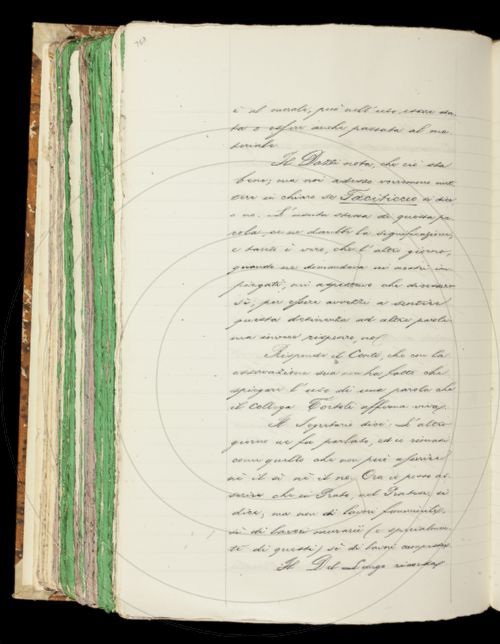 768
è al morale, può nell'uso essere sta-
ta o essere anche passata al ma-
teriale
Il Dazzi nota, che ciò sta
bene; ma noi adesso vorremmo met-
tere in chiaro se Faciticcio si dica
o no. L' usata di questa pa-
rola ce ne darebbe la significazione,
e tanto è vero, che l' altro giorno,
quando ne domandava ai nostri im-
piegati, mi aspettavo che dicessero
sì, per essere avvezzo a sentire
questa desinenza ad altre parole
ma invece risposero no.
Risponde il Conti, che con la
osservazione sua non ha fatto che
spiegare l' uso di una parola che
il Collega Tortoli afferma viva.
Il Segretario dice: L' altro
giorno ne fu parlato, ed io rimasi
come quello che non può asserire
nè il sì nè il no. Ora io posso as-
serire che in Prato, nel Pratese, si
dice, ma non di lavori femminili,
sì di lavori murarii (e specialmen-
te di questi) sì di lavori campestri
Il Del Lungo ricorda